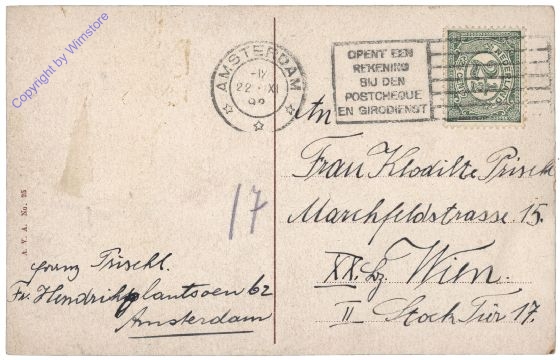 Copyright by Wimstore
AMSTERDAM
-IV
22.XI
OPENT EEN
REKENING
BIJ DEN
POSTCHEQUE
EN GIRODIENST
NEDERLAND
2½
An
Frau Klodilte Prischl
Marchfeldstrasse 15.
XX. Bz. Wien.
II Stock Tür 17.
17
A. V. A. No. 25
Franz Prischl.
Fr. Hendrikplantsoen 62
Amsterdam